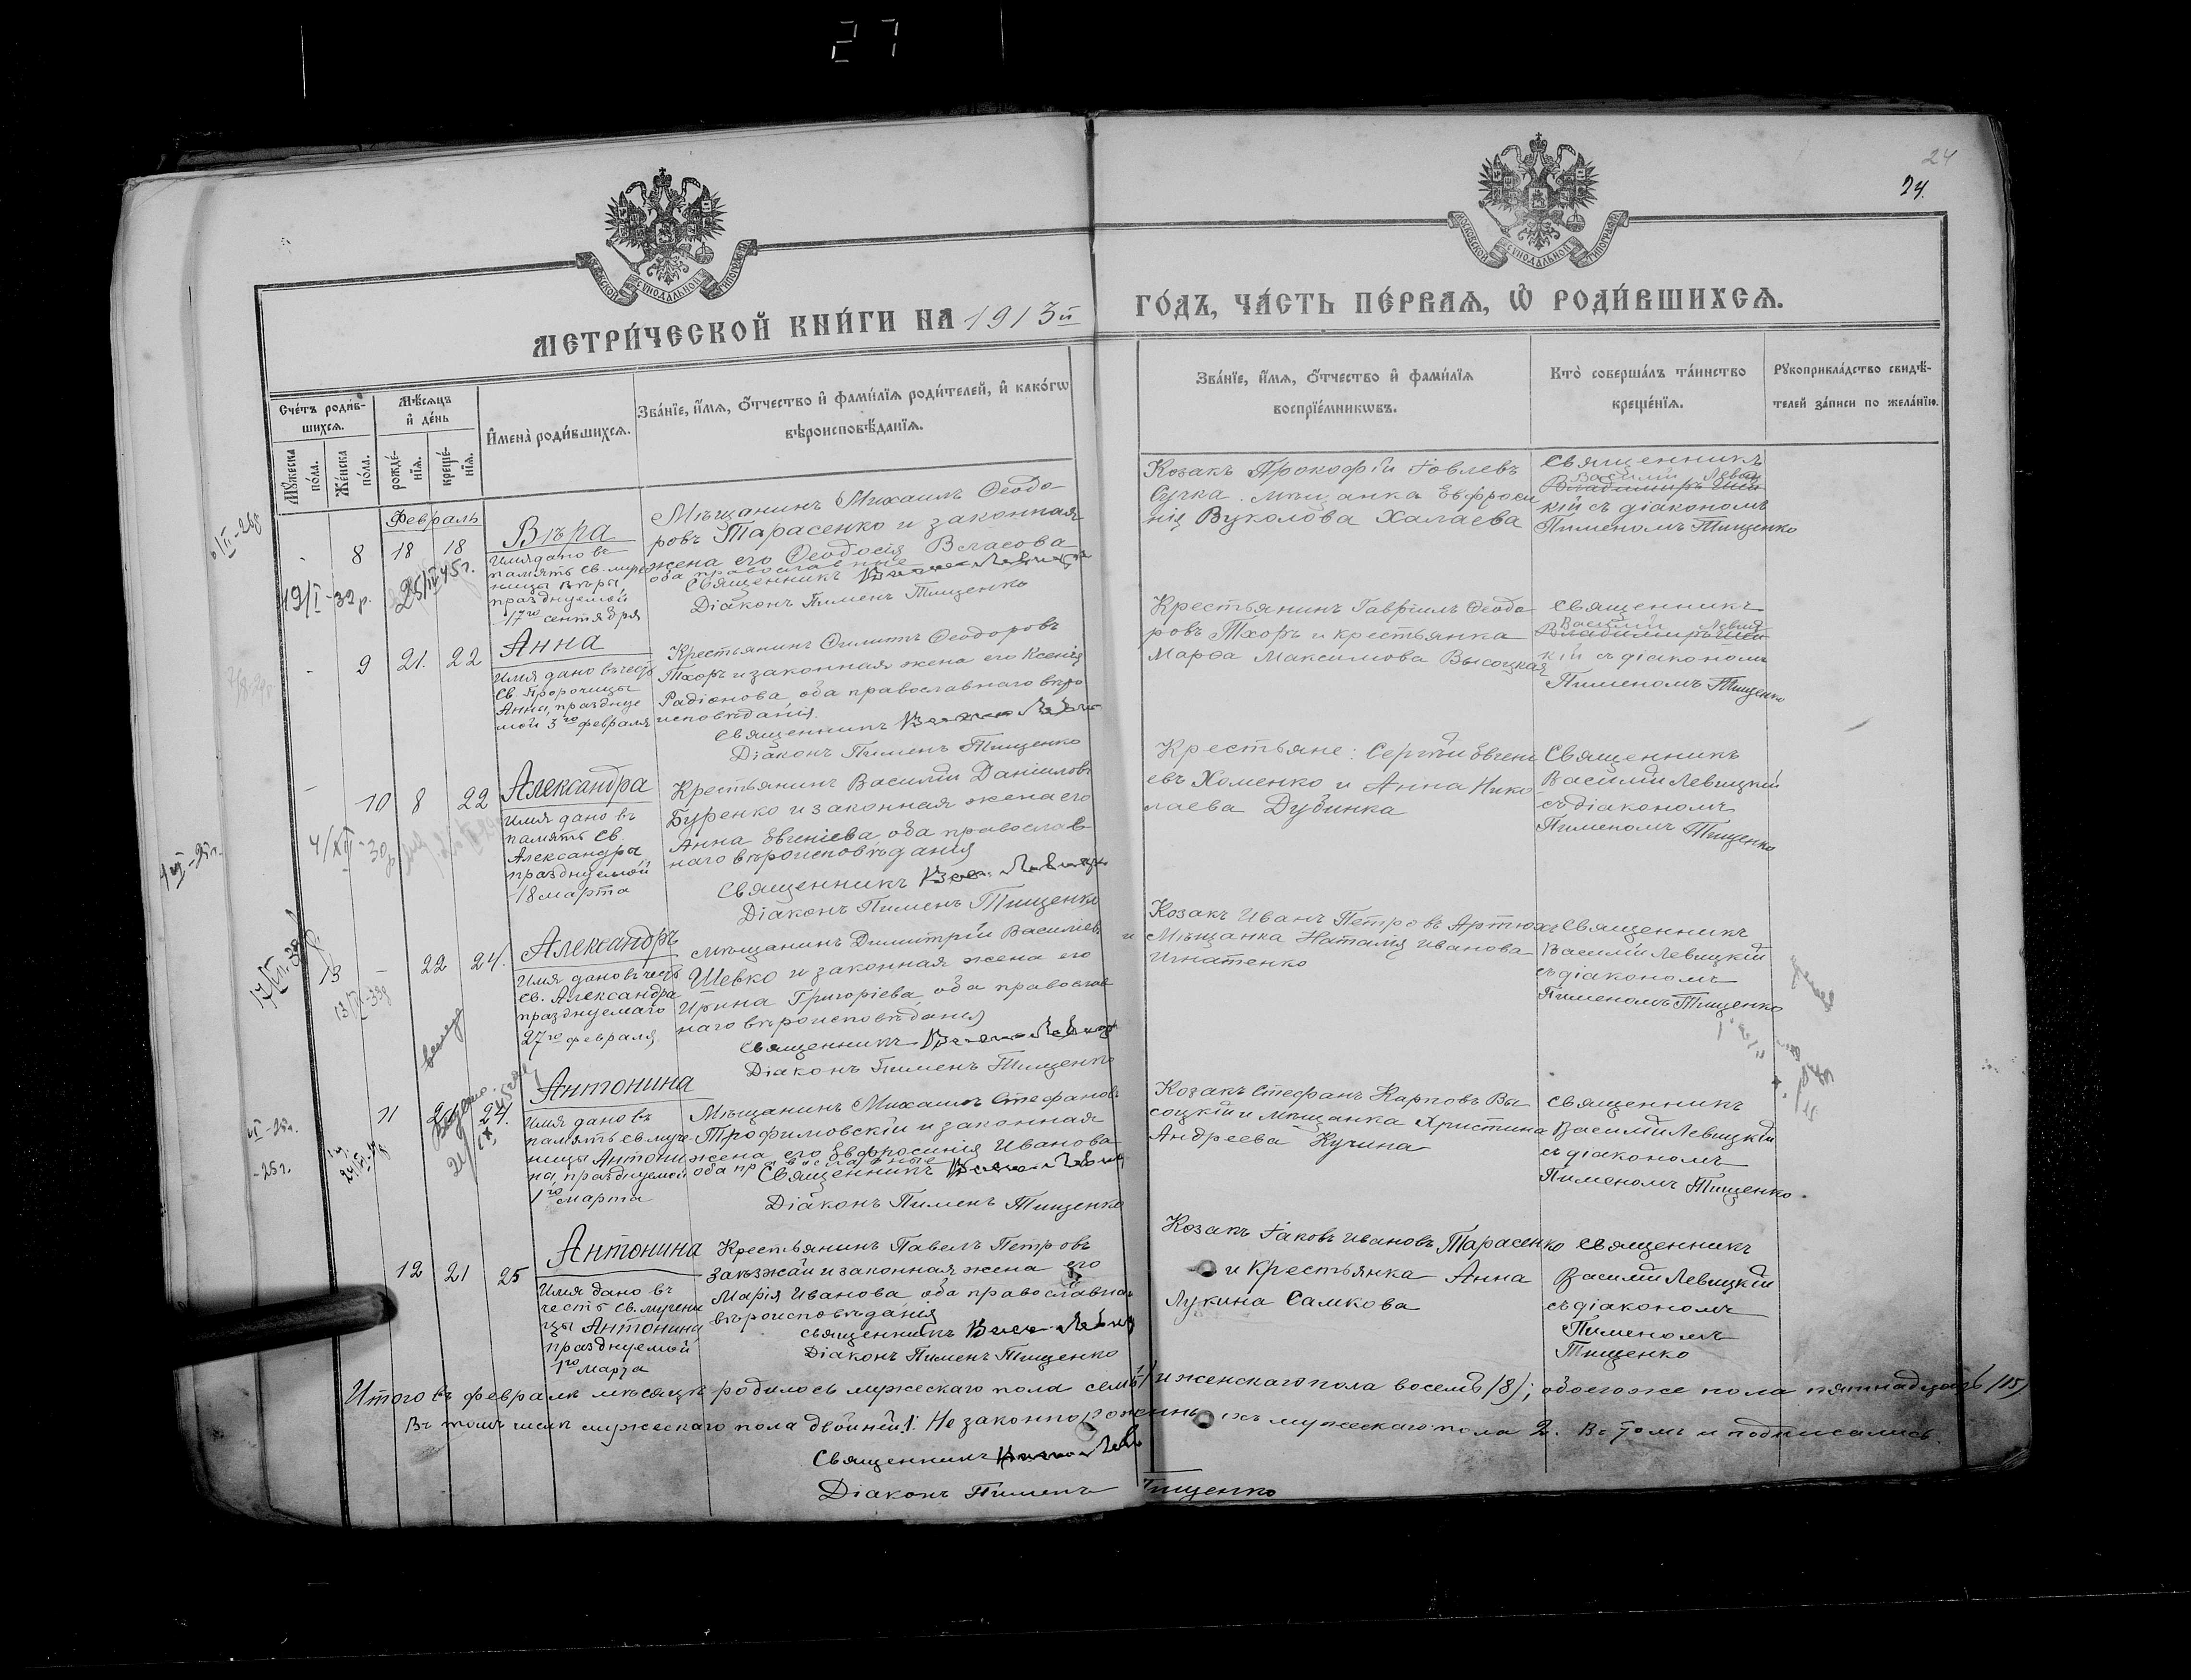 27
24
24.
МОСКОВСКОЙ СѴНОДАЛЬНОЙ ТИПОГРАФІИ
МОСКОВСКОЙ СѴНОДАЛЬНОЙ ТИПОГРАФІИ
МЕТРИ́ЧЕСКОЙ КНИ́ГИ НА 1913й
ГО́ДЪ, ЧА́СТЬ ПЕ́РВАѦ, Ѡ҆ РОДИ́ВШИХСѦ.
Сче́тъ роди́в-
шихсѧ.
Мꙋ́жеска
по́ла.
Же́нска
по́ла.
Мѣ́сѧцъ
и҆ де́нь
рожде́-
нїѧ.
креще́-
нїѧ.
И҆мена̀ роди́вшихсѧ.
Зва́нїе, и҆́мѧ, ѻ҆́тчество и҆ фами́лїѧ роди́телей, и҆ како́гѡ
вѣроисповѣ́данїѧ.
Зва́нїе, и҆́мѧ, ѻ҆́тчество и҆ фами́лїѧ
воспрїе́мникѡвъ.
Кто̀ соверша́лъ та́инство
креще́нїѧ.
Рꙋкоприкла́дство свидѣ́-
телей за́писи по жела́нїю.
Февраль
- 8 18 18
Вѣра
Имя дано въ
память св. муче
ницы Вѣры
празднуемой
17го сентября
Мѣщанинъ Михаилъ Ѳеодо-
ровъ Тарасенко и законная
жена его Ѳеодосія Власова
оба православные
Священникъ
Діаконъ Пименъ Тищенко
Козакъ Прокофій Іовлевъ
Сучка. мѣщанка Евфроси
нія Вуколова Халаева
Священникъ
Василій Левиц
кій съ діакономъ
Пименомъ Тищенко
19/I-32 р.
25/IV 45 г.
- 9 21. 22
Анна
Имя дано въ честь
св. Пророчицы
Анны, праздну
мой 3го февраля
Крестьянинъ Филиппъ Ѳеодоровъ
Тхоръ и законная жена его Ксенія
Радіонова, оба православнаго вѣро
исповѣданія.
Священникъ
Діаконъ Пименъ Тищенко
Крестьянинъ Гавріилъ Ѳеодо
ровъ Тхоръ и крестьянка
Марѳа Максимова Высоцкая
Священникъ
Василій Левиц
кій съ діакономъ
Пименомъ Тищенко
- 10 8 22
Александра
Имя дано въ
память св.
Александры
празднуемой
18 марта
Крестьянинъ Василій Даніиловъ
Буренко и законная жена его
Анна Евгеніева, оба православ-
наго вѣроисповѣданія
Священникъ
Діаконъ Пименъ Тищенко
Крестьяне: Сергѣй Евгені
евъ Хоменко и Анна Нико
лаева Дубинка
Священникъ
Василій Левицкій
съ діакономъ
Пименомъ Тищенко
13 - 22 24.
Александръ
Имя дано въ честь
св. Александра
празднуемаго
27го февраля
Мѣщанинъ Димитрій Василіевъ
Шевко и законная жена его
Ирина Григоріева, оба православ
наго вѣроисповѣданія
Священникъ
Діаконъ Пименъ Тищенко
Козакъ Иванъ Петровъ Артюхъ
и Мѣщанка Наталія Иванова
Игнатенко
Священникъ
Василій Левицкій
съ діакономъ
Пименомъ Тищенко
11 24 24.
Антонина
Имя дано въ
память св. муче-
ницы Антони
на, празднуемой
1го марта
Мѣщанинъ Михаилъ Стефановъ
Трофимовскій и законная
жена его Евфросинія Иванова
оба православные
Священникъ
Діаконъ Пименъ Тищенко
Козакъ Стефанъ Карповъ Вы
соцкій и мѣщанка Христина
Андреева Кучина
Священникъ
Василій Левицкій
съ діакономъ
Пименомъ Тищенко.
12 21 25
Антонина
Имя дано въ
честь св. мучени
цы Антонины
празднуемой
1го марта
Крестьянинъ Павелъ Петровъ
Заѣзжай и законная жена его
Марія Иванова, оба православнаго
вѣроисповѣданія
Священникъ
Діаконъ Пименъ Тищенко
Козакъ Іаковъ Ивановъ Тарасенко
и крестьянка Анна
Лукина Самкова
Священникъ
Василій Левицкій
съ діакономъ
Пименомъ
Тищенко
Итого въ февралѣ мѣсяцѣ родилось мужескаго пола семь и женскаго пола восемь (8); обоего же пола пятнадцать (15)
Въ томъ числѣ мужескаго пола двойней 1. Незаконнорожденныхъ мужескаго пола 2. Въ томъ и подписались
Священникъ
Діаконъ Пименъ Тищенко